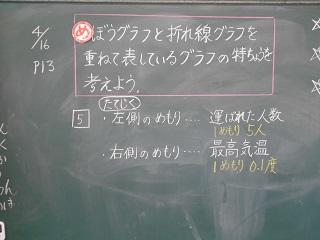 4/16
P13
めぼうグラフと折れ線グラフを
重ねて表しているグラフの特ちょうを
考えよう。
たてじく
5 ・左側のめもり‥‥運ばれた人数
1めもり 5人
・右側のめもり‥‥最高気温
1めもり 0.1度